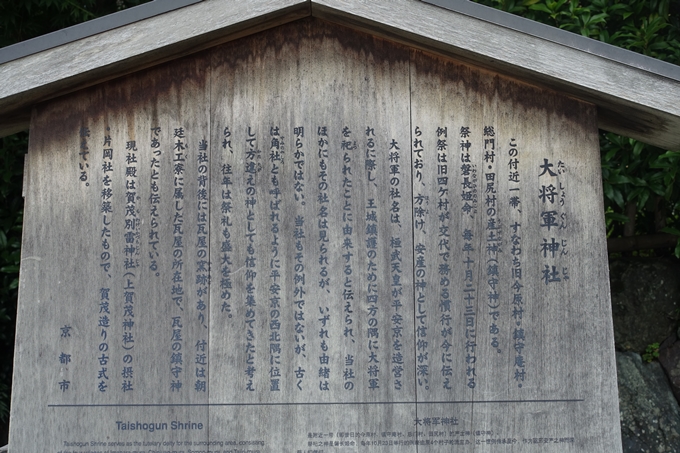 大将軍神社
たいしょうぐんじんじゃ
この付近一帯、すなわち旧今原村・鎮守庵村・
総門村・田尻村の産土神(鎮守神)である。
祭神は磐長姫命。毎年十月二十三日に行われる
例祭は旧四ケ村が交代で務める慣行が今に伝え
られており、方除け、安産の神として信仰が深い。
大将軍の社名は、桓武天皇が平安京を造営さ
れるに際し、王城鎮護のために四方の隅に大将軍
を祀られたことに由来すると伝えられ、当社の
ほかにもその社名は見られるが、いずれも由緒は
明らかではない。当社もその例外ではないが、古く
は角社とも呼ばれるように平安京の西北隅に位置
して方違えの神としても信仰を集めてきたと考え
られ、往年は祭礼も盛大を極めた。
当社の背後には瓦屋の窯跡があり、付近は朝
廷木工寮に属した瓦屋の所在地で、瓦屋の鎮守神
であったとも伝えられている。
現社殿は賀茂別雷神社(上賀茂神社)の摂社
片岡社を移築したもので、賀茂造りの古式を
伝えている。
京都市
Taishogun Shrine
Taishogun Shrine serves as the tutelary deity for the surrounding area, consisting
大将軍神社